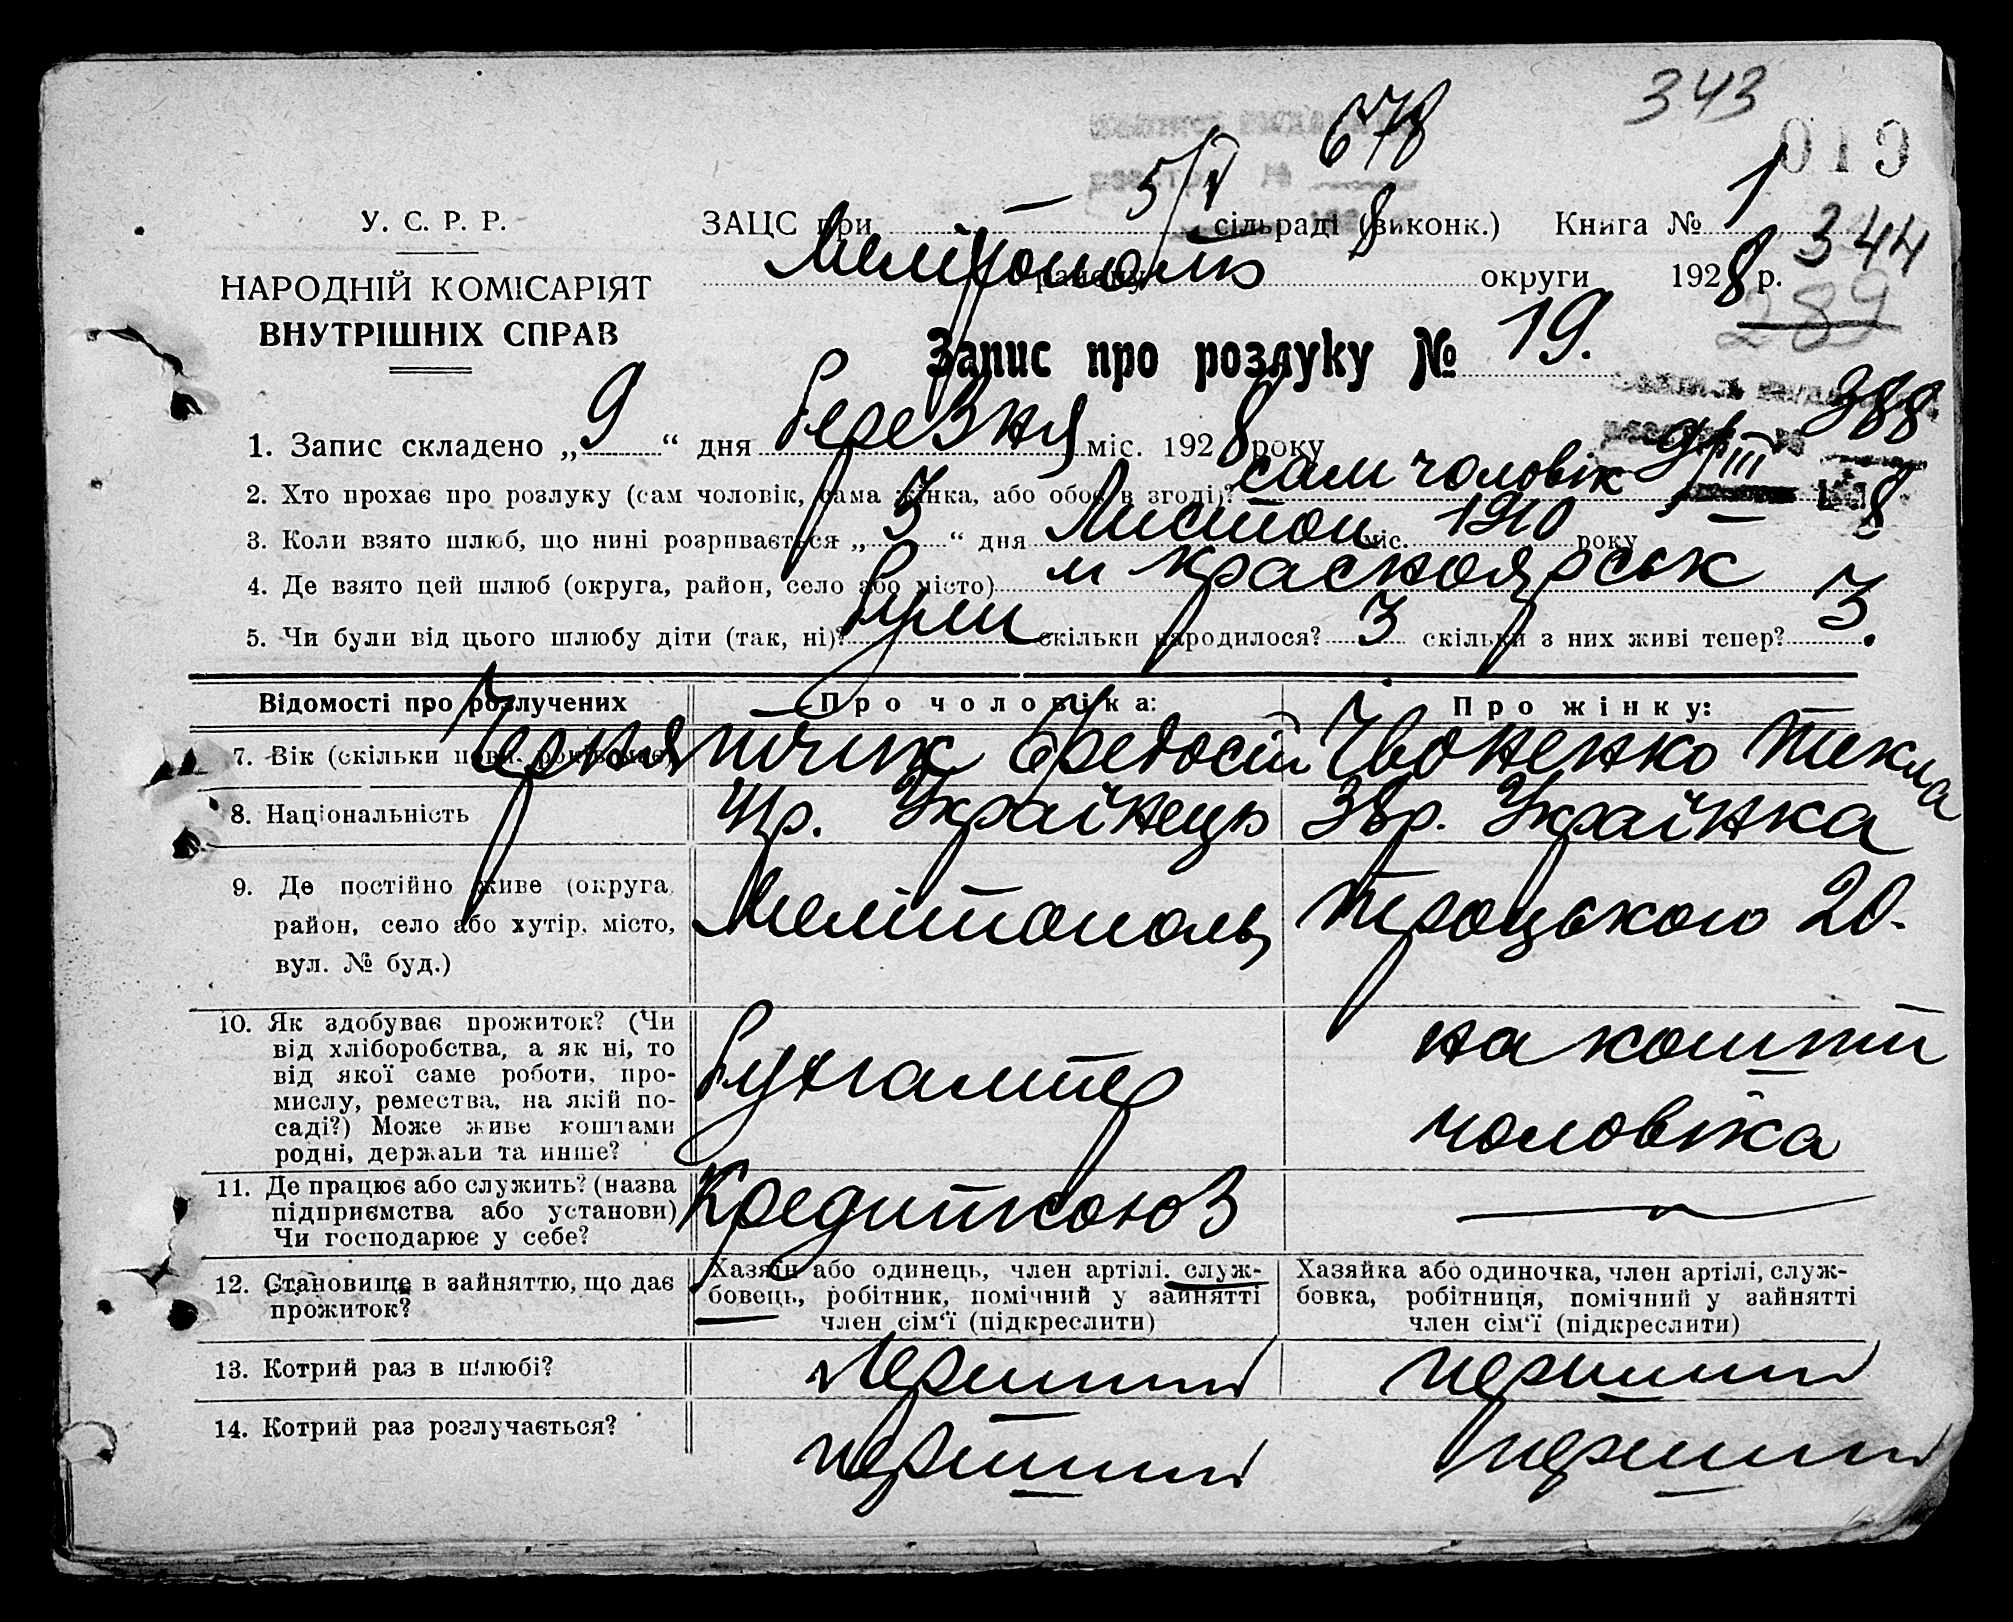 343
678
019
5/V
8
1
У. С. Р. Р.
ЗАЦС при сільраді (виконк.) Книга №
344
Мелітополь
НАРОДНІЙ КОМІСАРІЯТ
району округи 1928 р.
289
ВНУТРІШНІХ СПРАВ
Запис про розлуку № 19.
388
1. Запис складено „9“ дня Березня міс. 1928 року
9/III
8
2. Хто прохає про розлуку (сам чоловік, сама жінка, або обоє в згоді)? сам чоловік
3. Коли взято шлюб, що нині розривається „3“ дня Листоп міс. 1910 року
4. Де взято цей шлюб (округа, район, село або місто) м Красноярськ
5. Чи були від цього шлюбу діти (так, ні)? Були скільки народилося? 3 скільки з них живі тепер? 3.
Відомості про розлучених Про чоловіка: Про жінку:
7. Вік (скільки повн. років має) Федосій Івоненко Текла
8. Національність Українець Українка
9. Де постійно живе (округа, район, село або хутір, місто, вул. № буд.)
Мелітополь, Троцького 20.
10. Як здобуває прожиток? (Чи
від хліборобства, а як ні, то
від якої саме роботи, про-
мислу, ремества, на якій по-
саді?) Може живе коштами
родні, держави та инше?
Бухгалтер
на кошти
чоловіка
11. Де працює або служить? (назва
підприємства або установи)
Чи господарює у себе?
Кредитсоюз
12. Становище в зайняттю, що дає
прожиток?
Хазяїн або одинець, член артілі, служ-
бовець, робітник, помічний у зайнятті
член сім'ї (підкреслити)
Хазяйка або одиночка, член артілі, служ-
бовка, робітниця, помічний у зайнятті
член сім'ї (підкреслити)
13. Котрий раз в шлюбі? перший перший
14. Котрий раз розлучається? перший перший